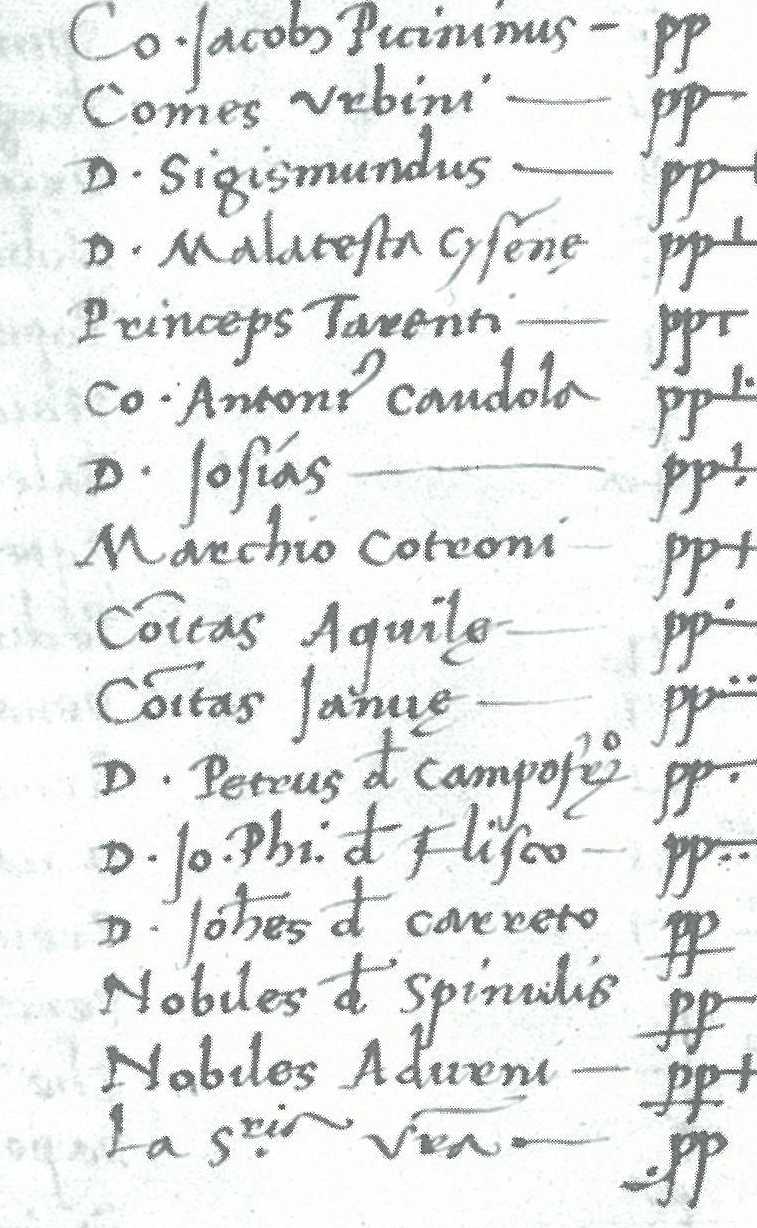 Co · Jacobus Picininus – pp
Comes Urbini — pp
D · Sigismundus — pp
D · Malatesta Cesene pp
Princeps Tarenti — pp
Co · Antoni9 Caudola pp
D · Josias — pp
Marchio Cotroni — pp
Coitas Aquile — pp
Coitas Janue — pp
D · Petrus d Campofr.º pp
D · Jo · Phi · d Flisco — pp
D · Johes d Carreto pp
Nobiles d Spinulis pp
Nobiles Adurni — pp
La S.ria Vra — pp